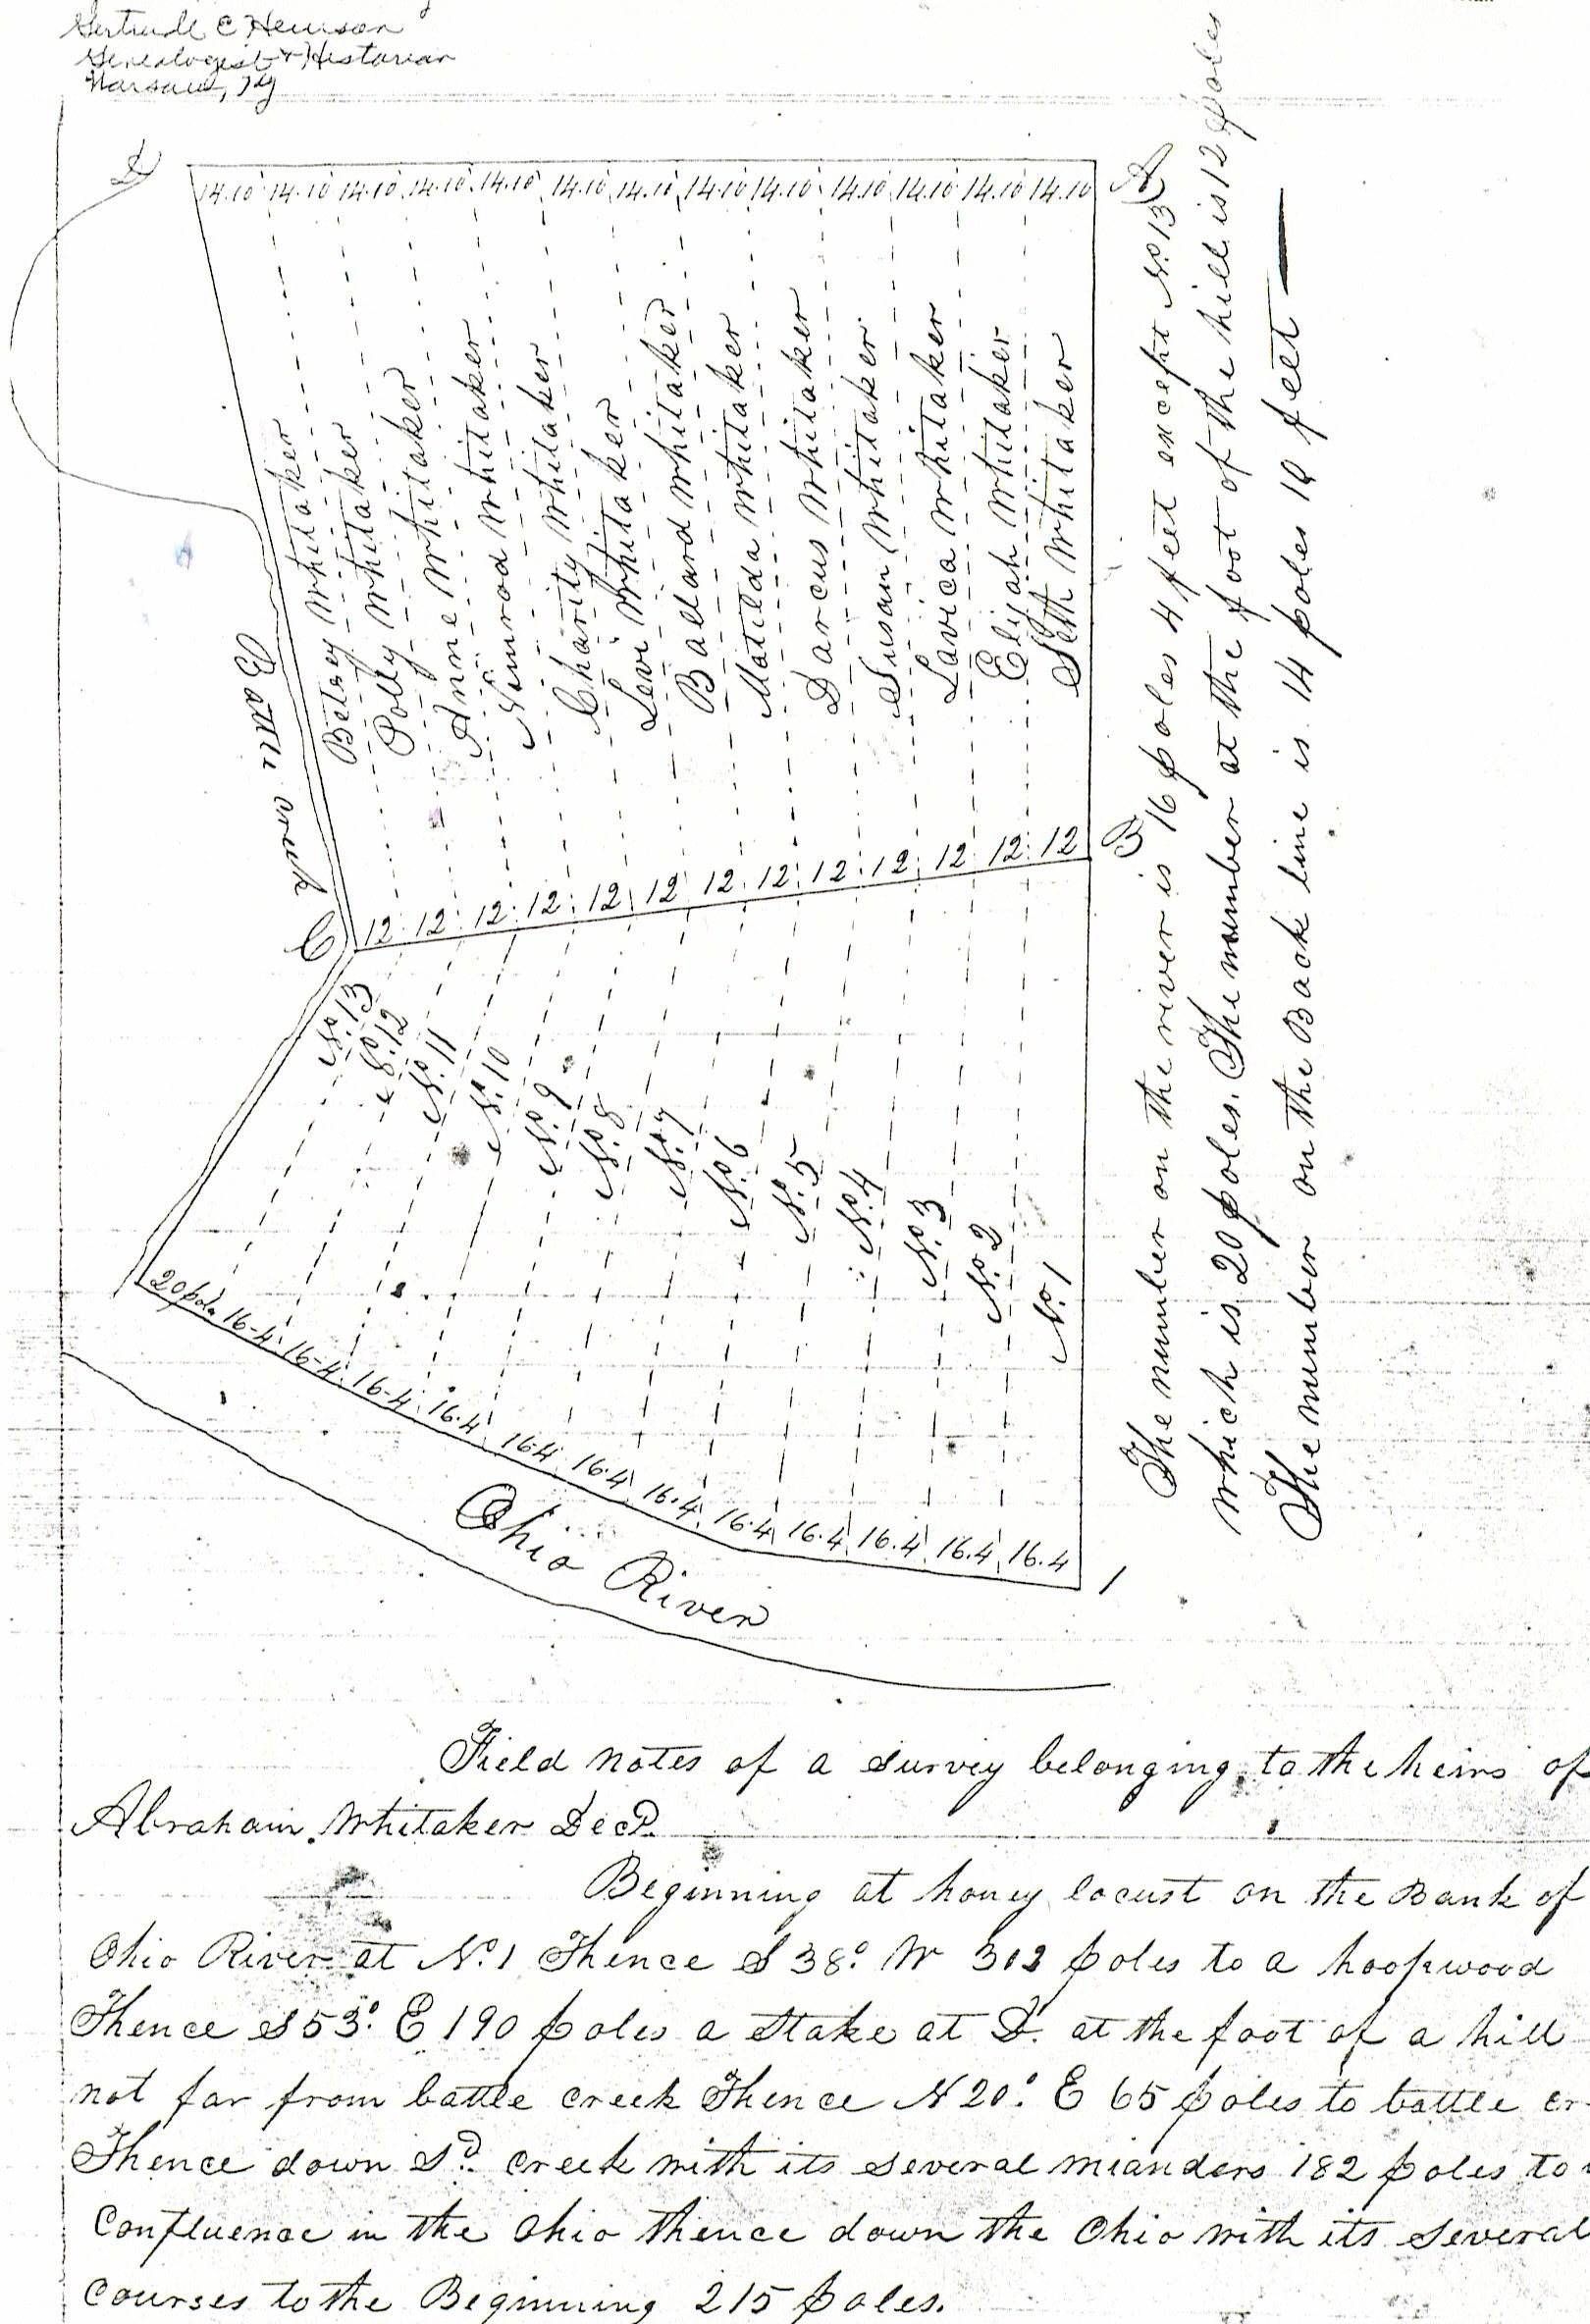 Gertrude C Hewson
Genealogist & Historian
Warsaw, Ky
D
14.10 14.10 14.10 14.10 14.10 14.10 14.10 14.10 14.10 14.10 14.10 14.10 14.10
A
Betsey Whitaker
Polly Whitaker
Anne Whitaker
Nimrod Whitaker
Charity Whitaker
Levi Whitaker
Ballard Whitaker
Matilda Whitaker
Darcus Whitaker
Susan Whitaker
Lavica Whitaker
Elijah Whitaker
Seth Whitaker
Battle creek
C
12 12 12 12 12 12 12 12 12 12 12 12 12
B
No. 13
No. 12
No. 11
No. 10
No. 9
No. 8
No. 7
No. 6
No. 5
No. 4
No. 3
No. 2
No. 1
20 pole 16-4 16-4 16-4 16.4 16.4 16.4 16.4 16.4 16.4 16.4 16.4 16.4
1
Ohio River
The number on the river is 16 poles 4 feet except No. 13
which is 20 poles. The number at the foot of the hill is 12 poles
The number on the Back line is 14 poles 10 feet
Field notes of a survey belonging to the heirs of
Abraham Whitaker Decd.
Beginning at honey locust on the Bank of
Ohio River at No. 1 Thence S 38° W 303 poles to a hoopwood
Thence S 53° E 190 poles a Stake at D. at the foot of a hill
not far from battle creek Thence N 20° E 65 poles to battle cr
Thence down Sd. creek with its several mianders 182 poles to
Confluence in the Ohio thence down the Ohio with its several
Courses to the Beginning 215 poles.